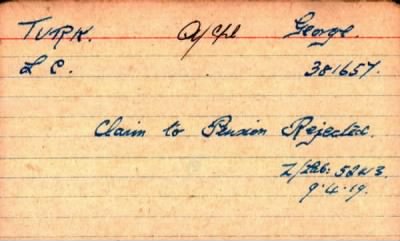 TURK. A/Cpl George.
L C. 381657.
Claim to Pension Rejected.
Z/Lab: 5243.
9.4.19.